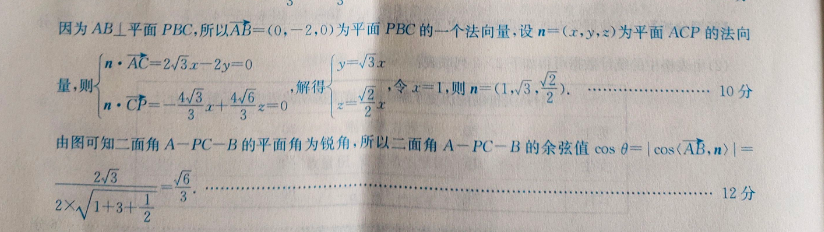 因为 AB⊥平面 PBC,所以$\overrightarrow{AB}$=(0,-2,0)为平面 PBC 的一个法向量,设 n=(x,y,z)为平面 ACP 的法向
量,则$\begin{cases} n\cdot\overrightarrow{AC}=2\sqrt{3}x-2y=0 \\ n\cdot\overrightarrow{CP}=-\frac{4\sqrt{3}}{3}x+\frac{4\sqrt{6}}{3}z=0 \end{cases}$,解得$\begin{cases} y=\sqrt{3}x \\ z=\frac{\sqrt{2}}{2}x \end{cases}$,令 x=1,则 n=(1,$\sqrt{3}$,$\frac{\sqrt{2}}{2}$). ……………………… 10 分
由图可知二面角 A-PC-B 的平面角为锐角,所以二面角 A-PC-B 的余弦值 cos θ=|cos⟨$\overrightarrow{AB}$,n⟩|=
$\frac{2\sqrt{3}}{2\times\sqrt{1+3+\frac{1}{2}}}=\frac{\sqrt{6}}{3}$. ……………………………………………………………………………… 12 分